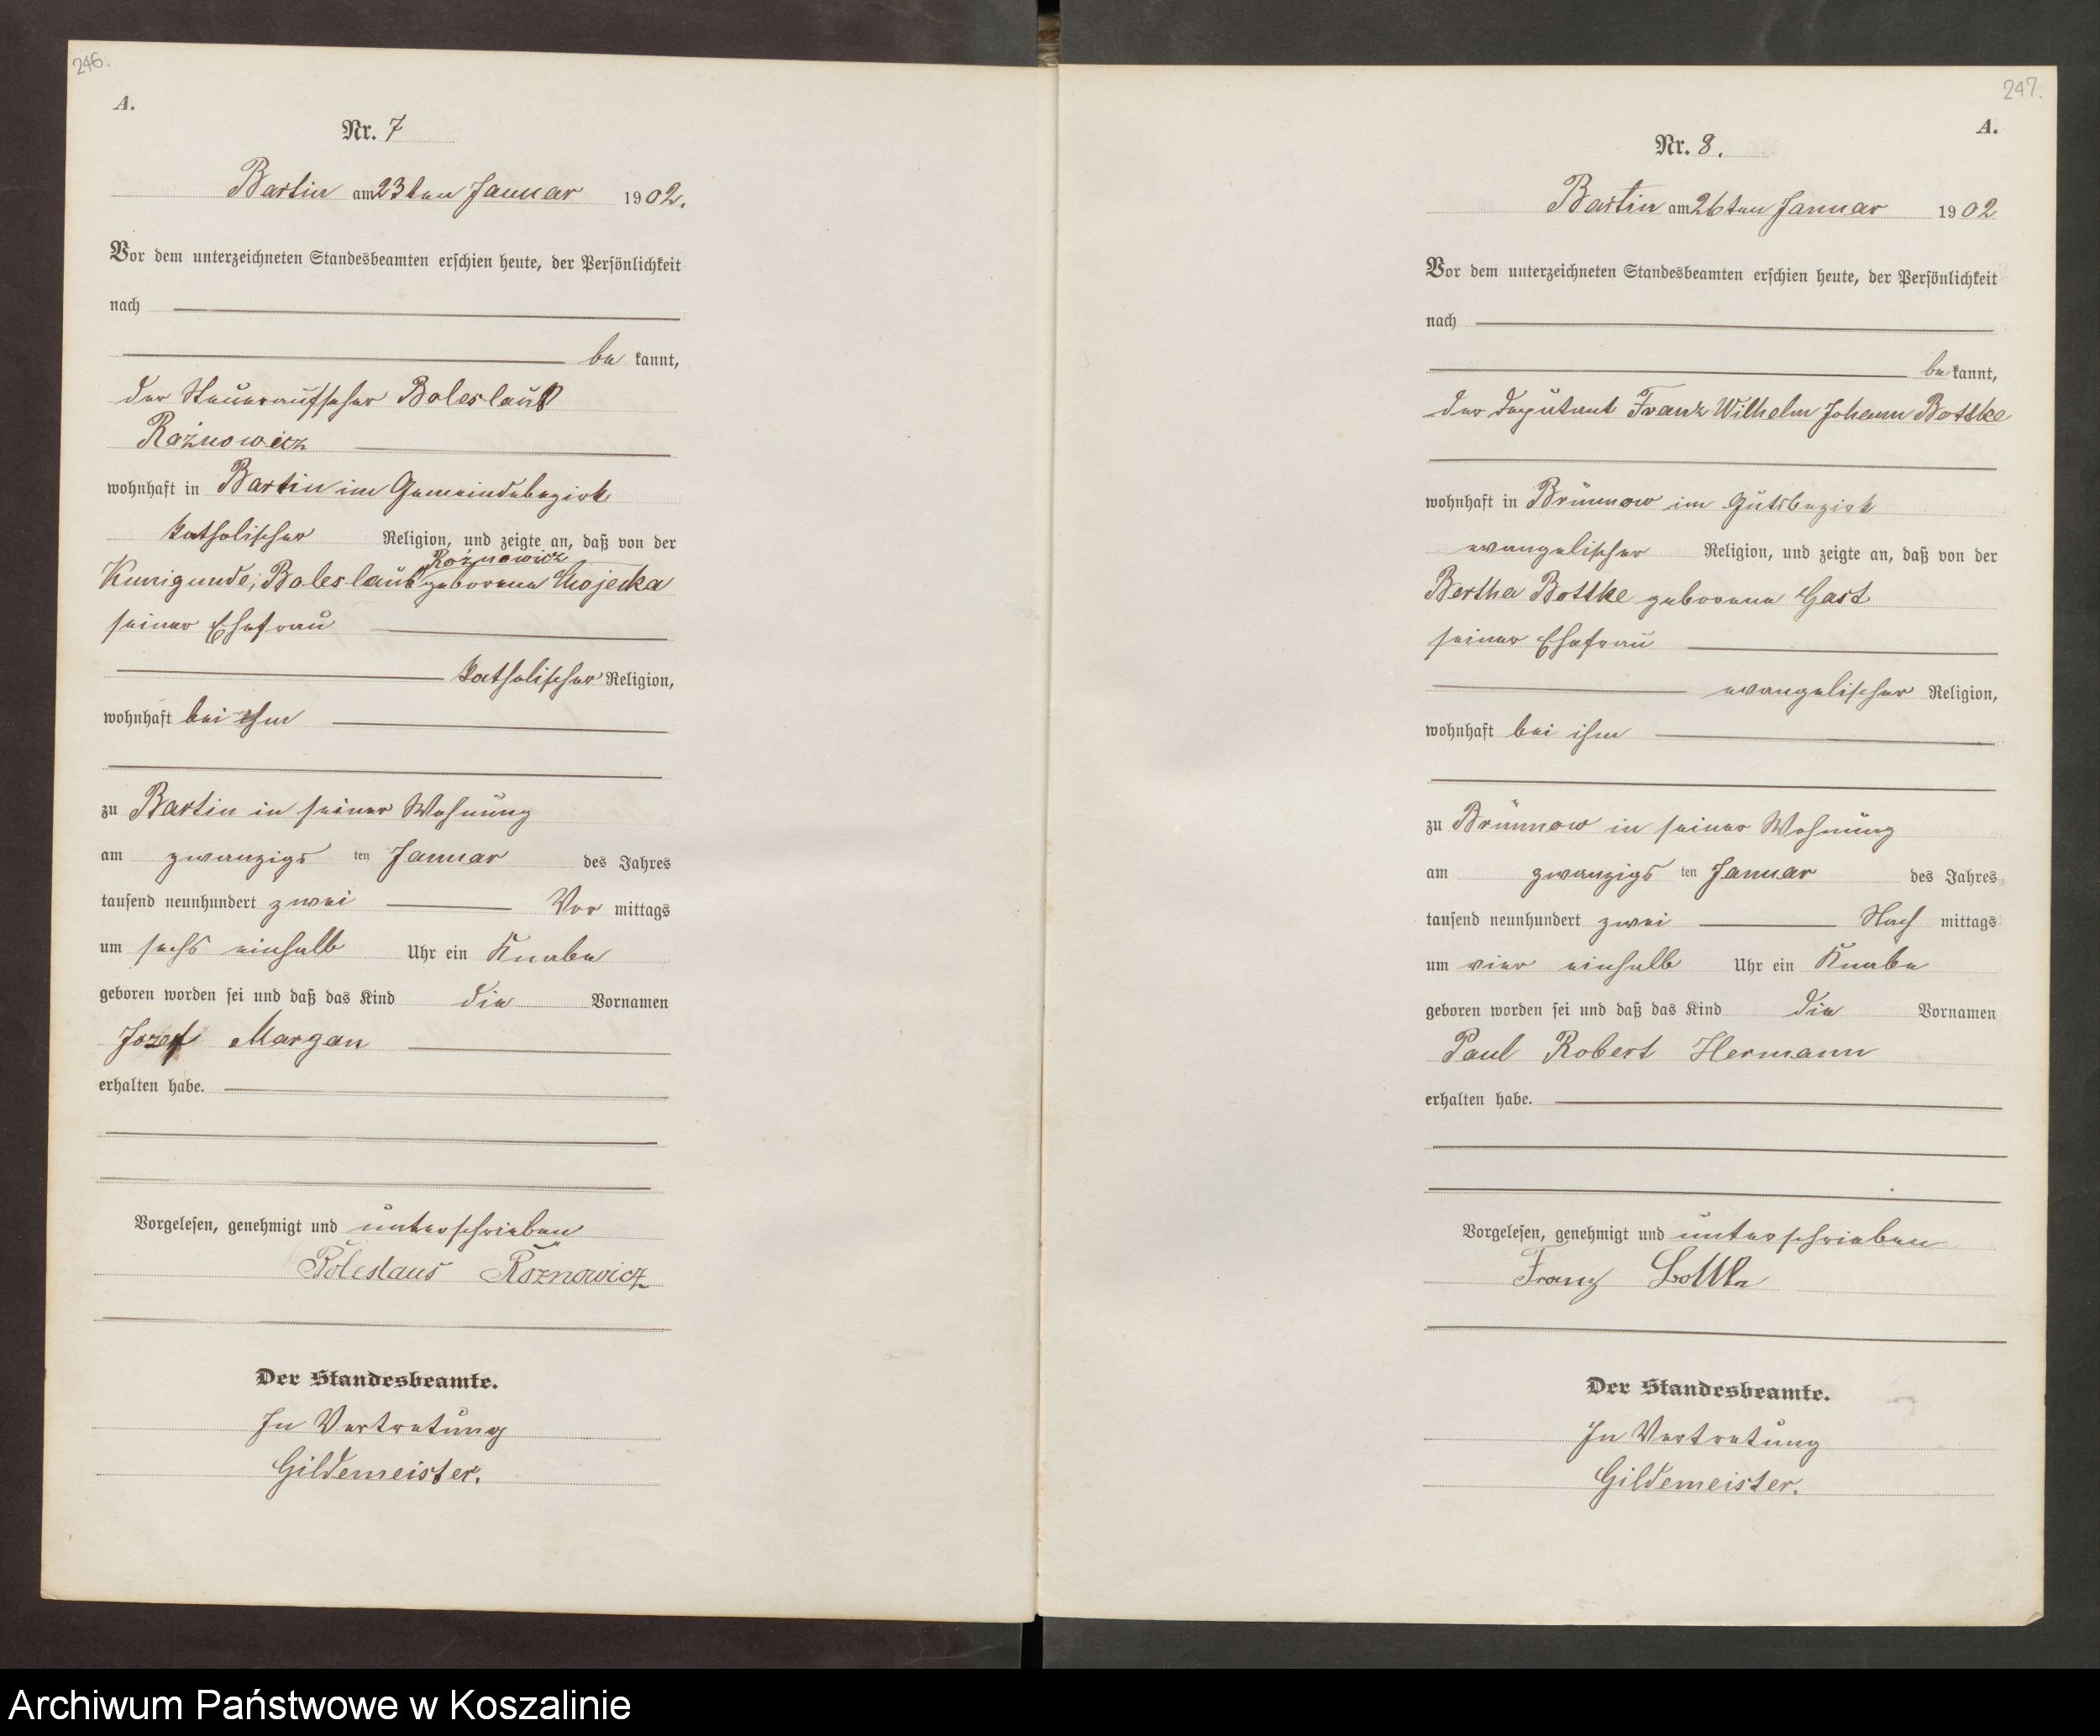 246.
A.
Nr. 7
Bartin am 23ten Januar 1902.
Vor dem unterzeichneten Standesbeamten erschien heute, der Persönlichkeit
nach
be kannt,
der Steueraufseher Boleslaus
Rożnowicz
wohnhaft in Bartin im Gemeindebezirk
katholischer Religion, und zeigte an, daß von der
Rożnowicz
Kunigunde, Boleslaus geborene
seiner Ehefrau
katholischer Religion,
wohnhaft bei ihm
zu Bartin in seiner Wohnung
am zwanzigs ten Januar des Jahres
tausend neunhundert zwei Vor mittags
um sechs einhalb Uhr ein Knabe
geboren worden sei und daß das Kind die Vornamen
Jozef Margan
erhalten habe.
Vorgelesen, genehmigt und unterschrieben
Boleslaus Rożnowicz
Der Standesbeamte.
In Vertretung
Gildemeister.
247.
A.
Nr. 8.
Bartin am 26ten Januar 1902
Vor dem unterzeichneten Standesbeamten erschien heute, der Persönlichkeit
nach
be kannt,
der Deputant Franz Wilhelm Johann Bottke
wohnhaft in Brünnow im Gutsbezirk
evangelischer Religion, und zeigte an, daß von der
Bertha Bottke geborene Gast
seiner Ehefrau
evangelischer Religion,
wohnhaft bei ihm
zu Brünnow in seiner Wohnung
am zwanzigs ten Januar des Jahres
tausend neunhundert zwei Nach mittags
um vier einhalb Uhr ein Knabe
geboren worden sei und daß das Kind die Vornamen
Paul Robert Hermann
erhalten habe.
Vorgelesen, genehmigt und unterschrieben
Franz Bottke
Der Standesbeamte.
In Vertretung
Gildemeister.
Archiwum Państwowe w Koszalinie